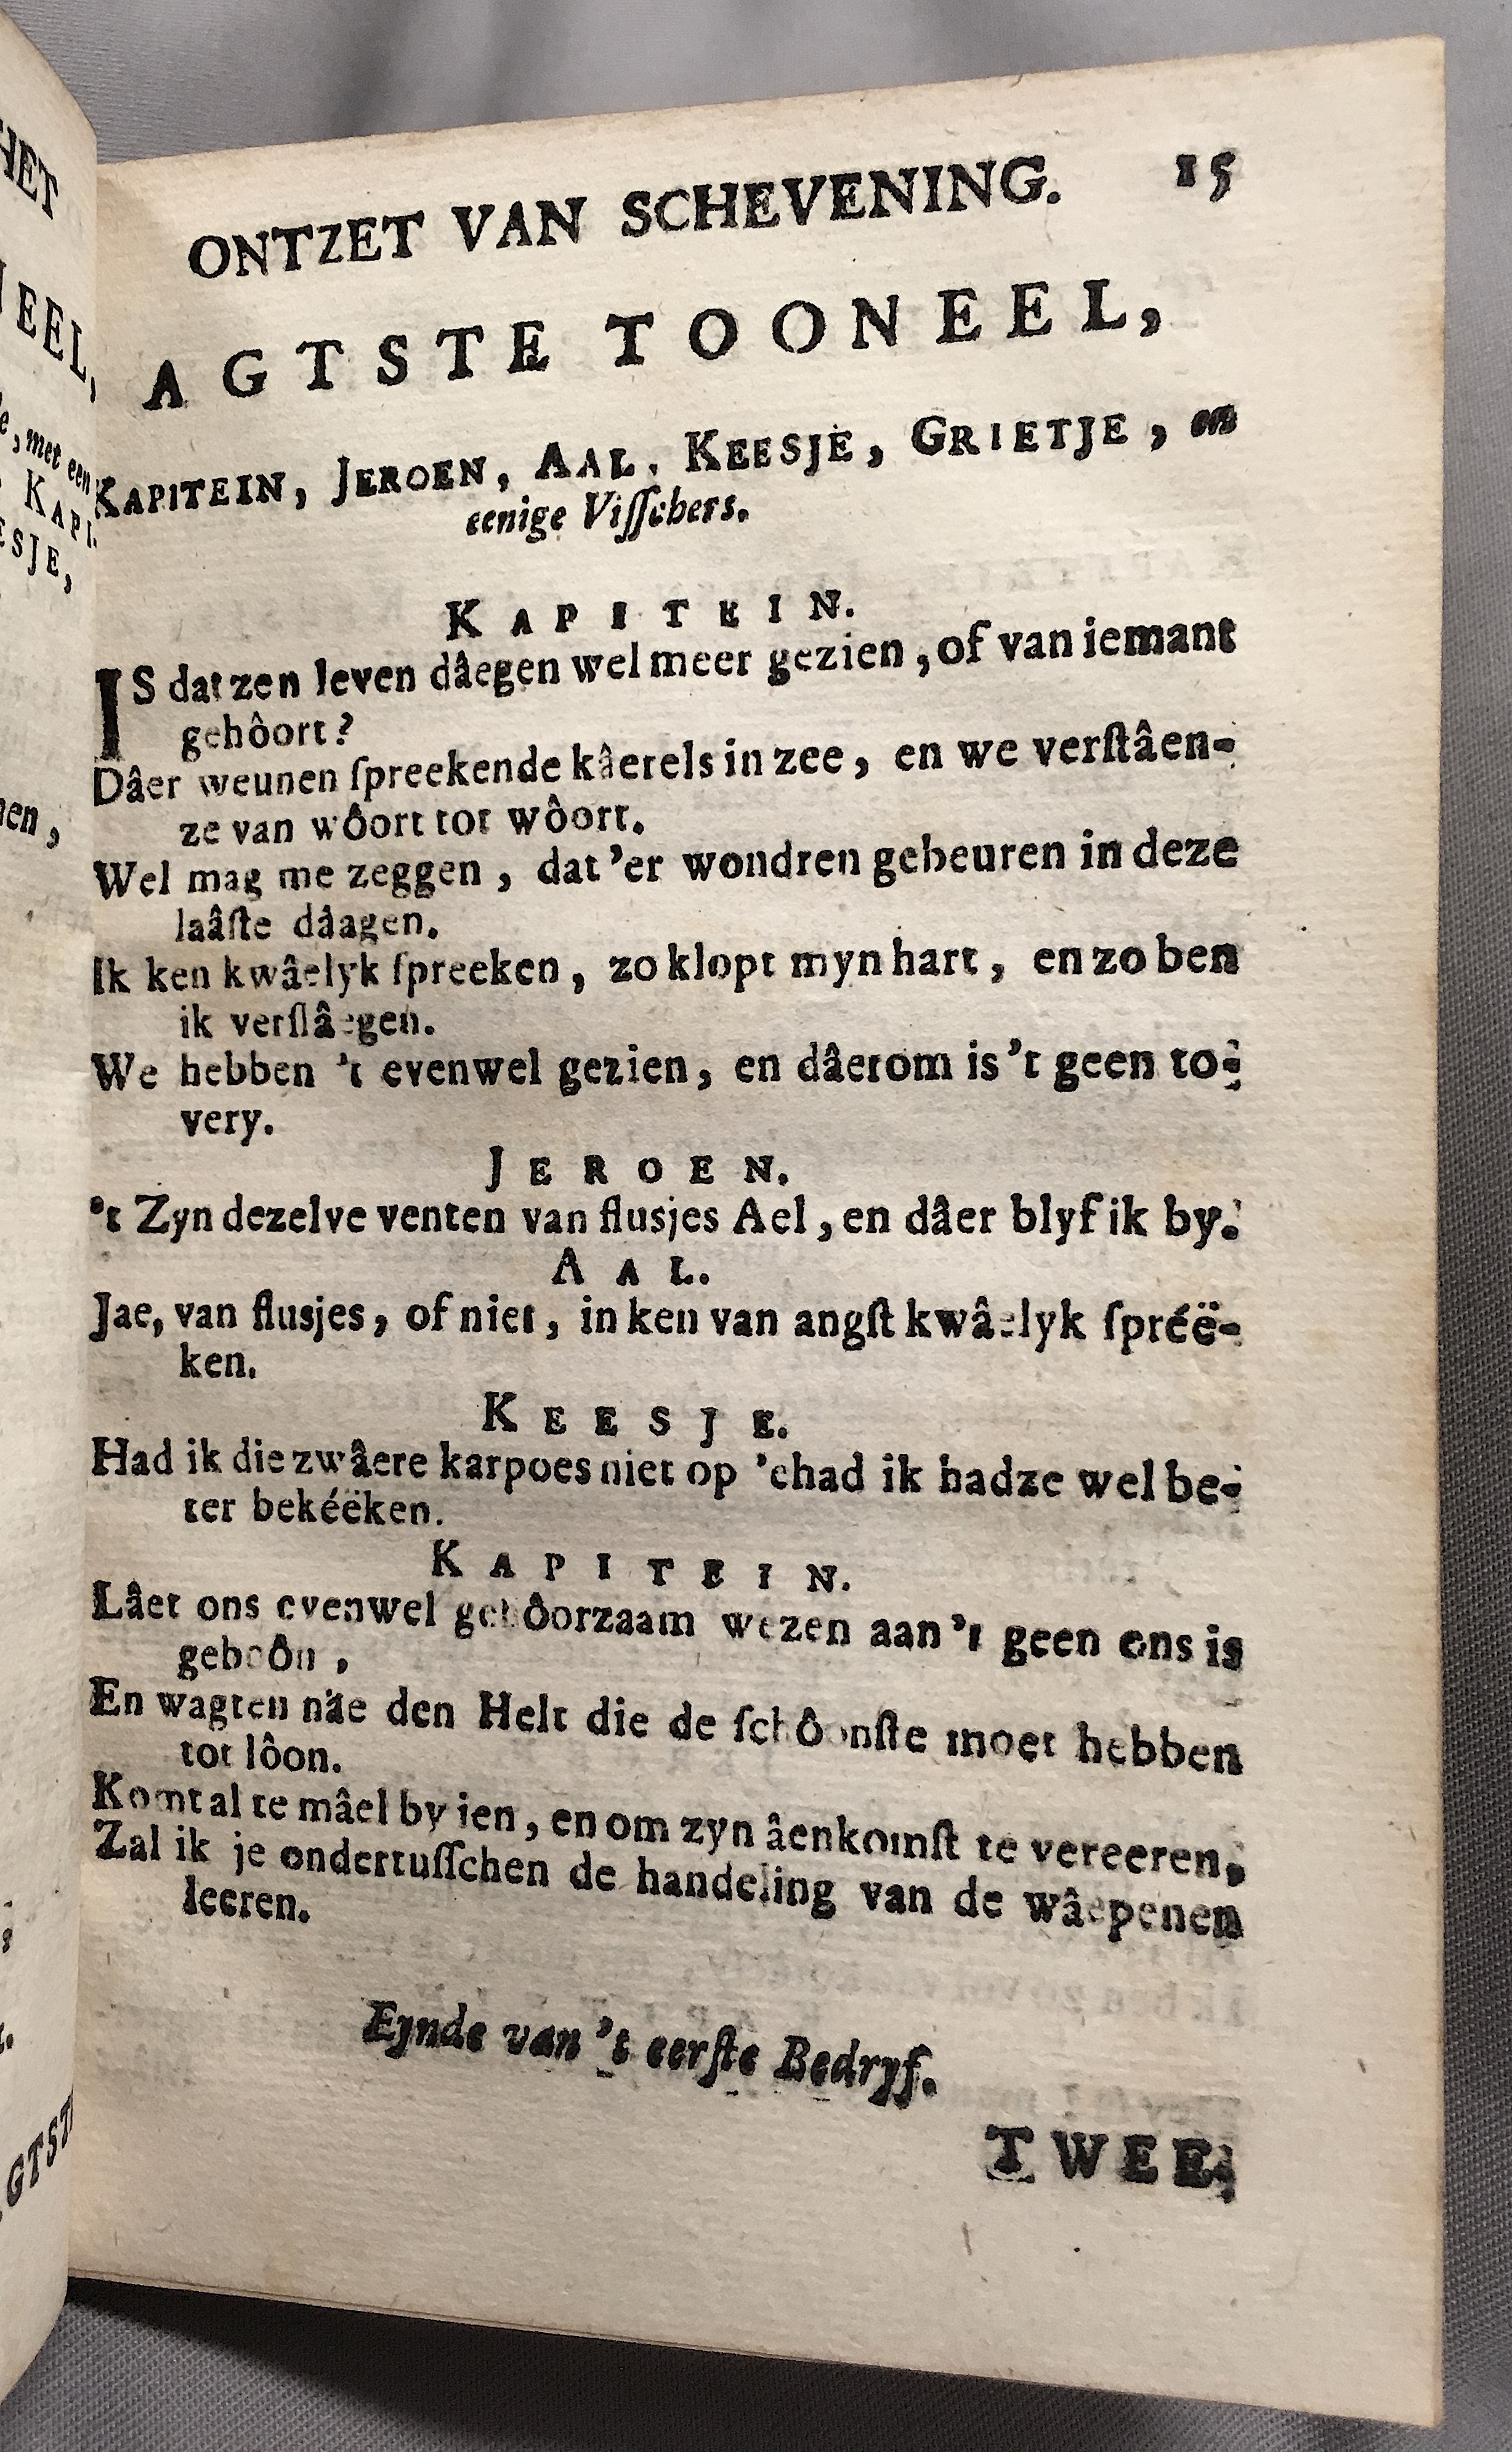 ONTZET VAN SCHEVENING. 15
AGTSTE TOONEEL,
KAPITEIN, JEROEN, AAL, KEESJE, GRIETJE, en
eenige Viſſchers.
KAPITEIN.
IS dat zen leven dâegen wel meer gezien, of van iemant
gehôort?
Dâer weunen ſpreekende kâerels in zee, en we verſtâen-
ze van wôort tot wôort.
Wel mag me zeggen, dat 'er wondren gebeuren in deze
laâſte dâagen.
Ik ken kwâelyk ſpreeken, zo klopt myn hart, en zo ben
ik verſlâegen.
We hebben 't evenwel gezien, en dâerom is 't geen to-
very.
JEROEN.
't Zyn dezelve venten van fluſjes Ael, en dâer blyf ik by.
AAL.
Jae, van fluſjes, of niet, in ken van angſt kwâelyk ſpréë-
ken.
KEESJE.
Had ik die zwâere karpoes niet op 'ehad ik hadze wel be-
ter bekéëken.
KAPITEIN.
Lâet ons evenwel gehôorzaam wezen aan 't geen ons is
geboôn,
En wagten nâe den Helt die de ſchôonſte moet hebben
tot lôon.
Komt al te mâel by ien, en om zyn âenkomſt te vereeren,
Zal ik je ondertuſſchen de handeling van de wâepenen
leeren.
Eynde van 't eerſte Bedryf.
TWEE-
HET
NEEL,
e, met een
KAPI-
ESJE,
nen,
AGTSTE